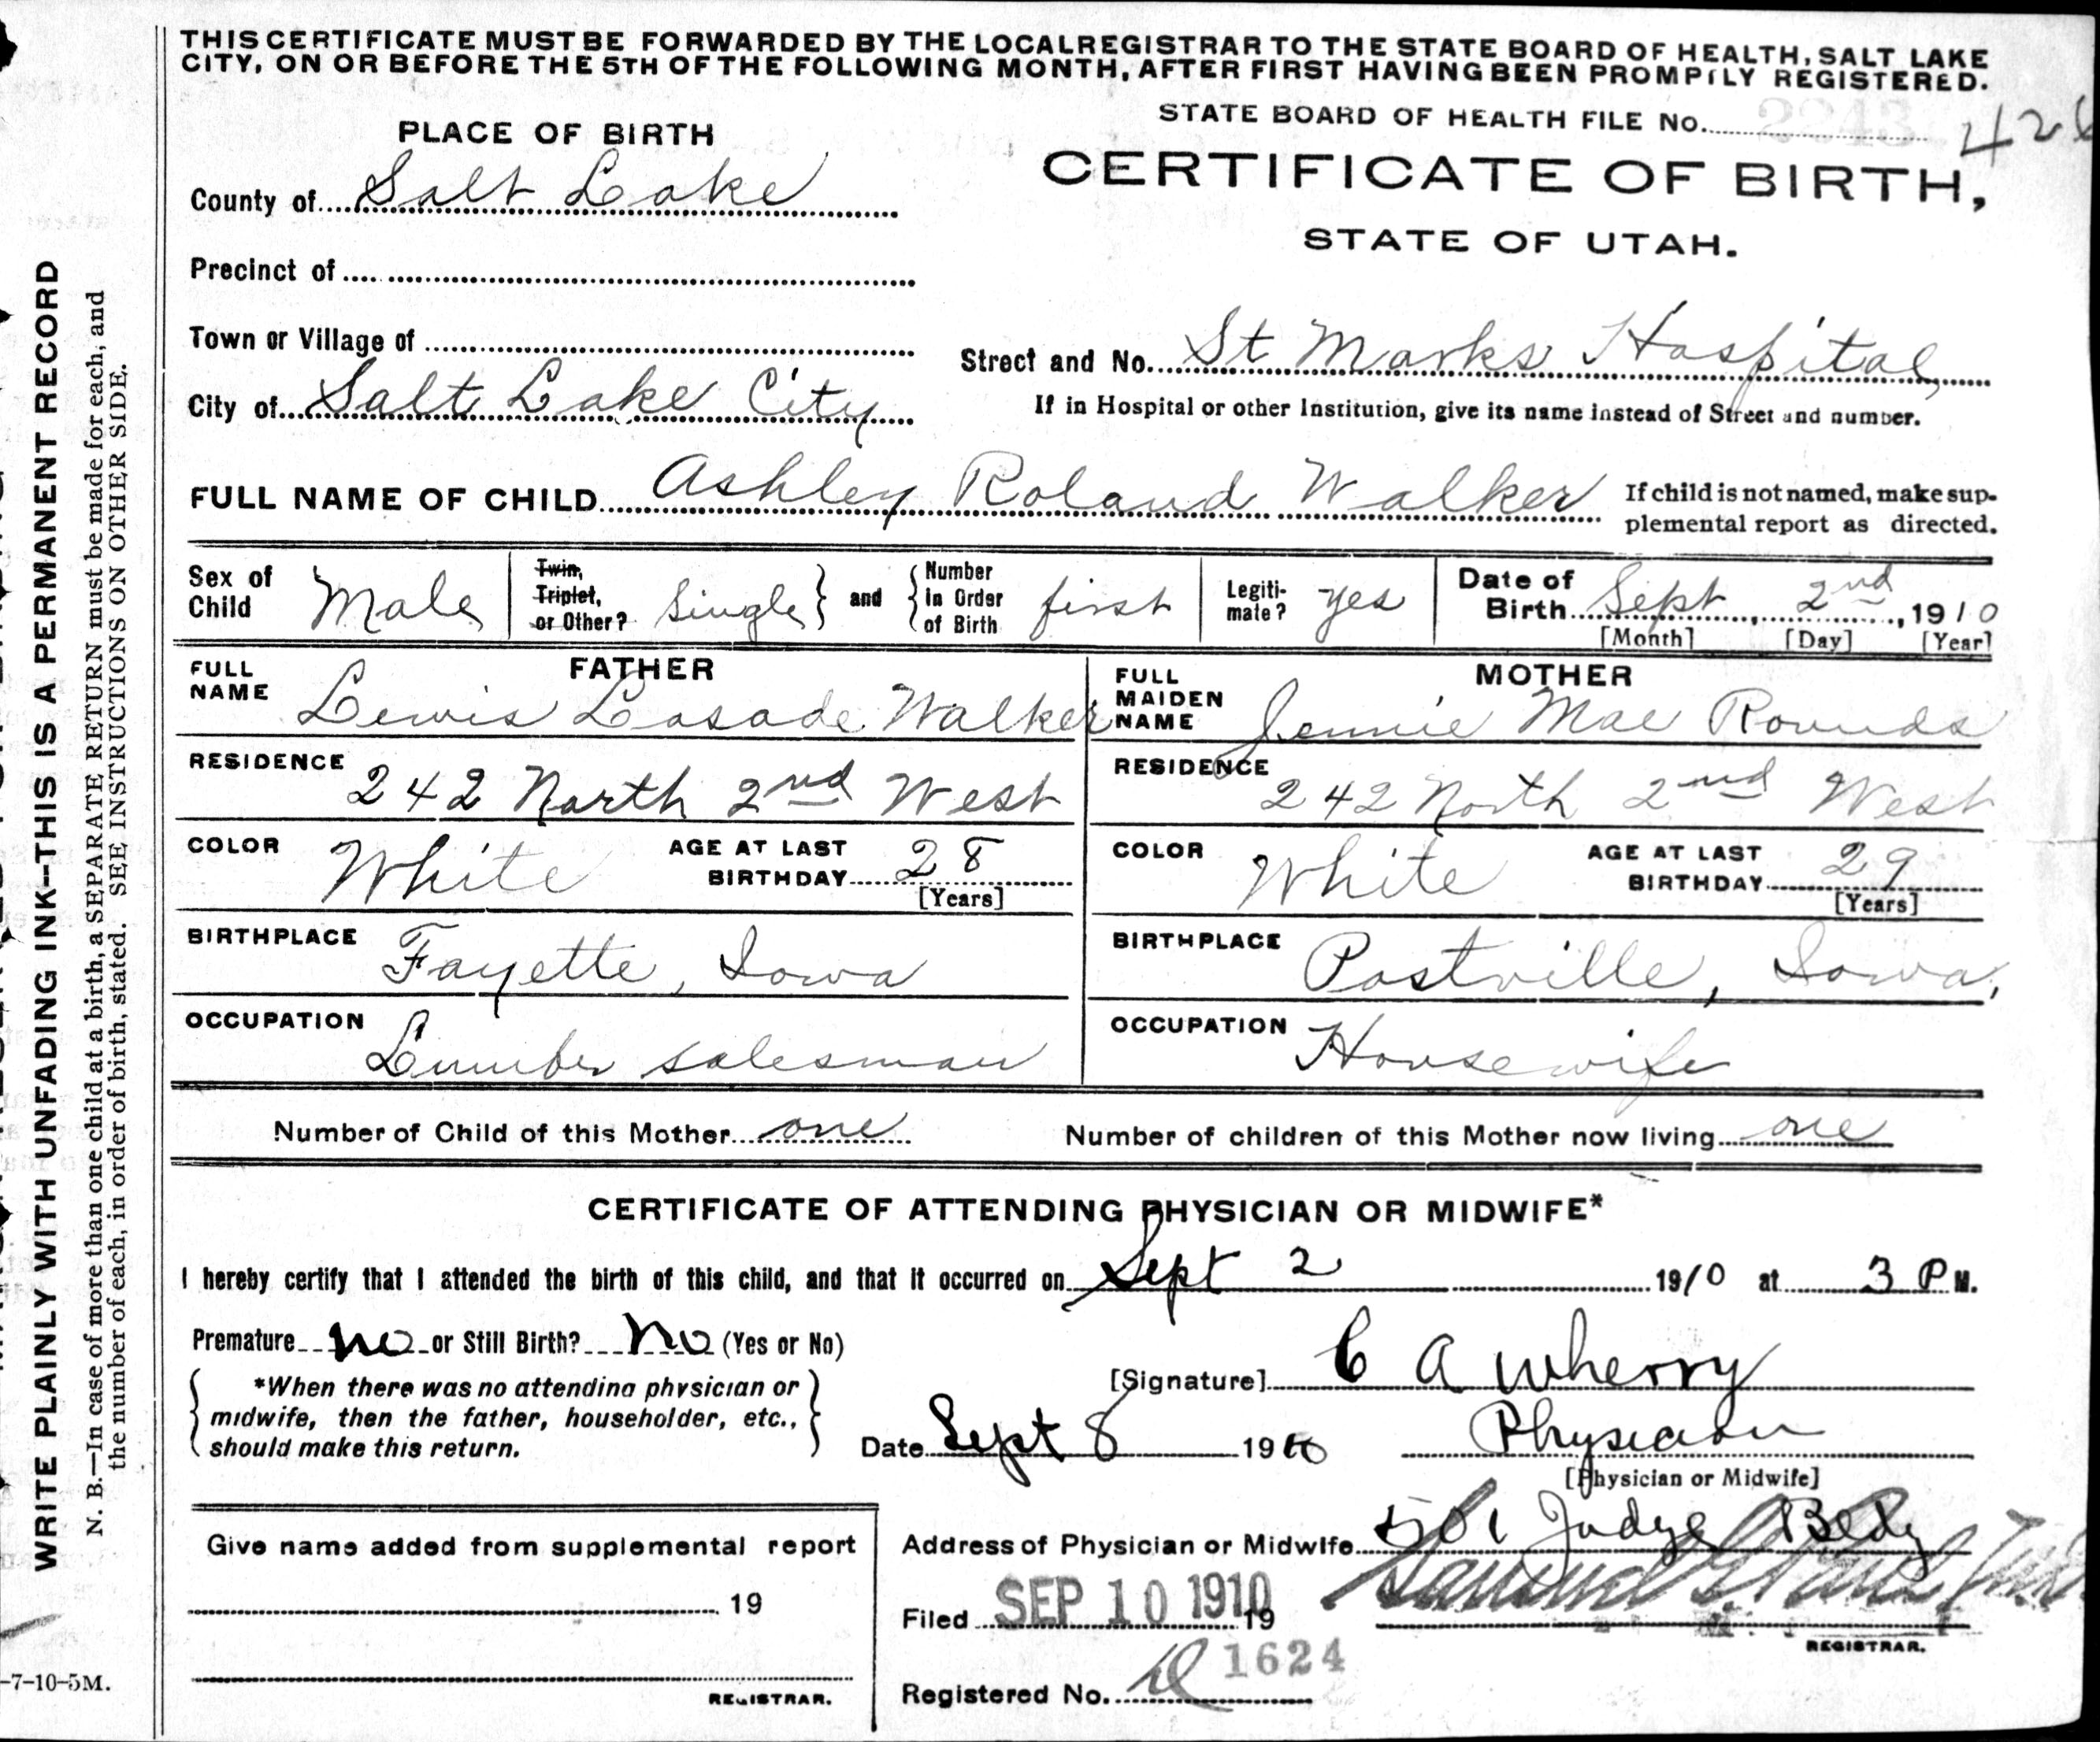 THIS CERTIFICATE MUST BE FORWARDED BY THE LOCAL REGISTRAR TO THE STATE BOARD OF HEALTH, SALT LAKE
CITY, ON OR BEFORE THE 5TH OF THE FOLLOWING MONTH, AFTER FIRST HAVING BEEN PROMPTLY REGISTERED.
STATE BOARD OF HEALTH FILE No. 2243
PLACE OF BIRTH
CERTIFICATE OF BIRTH,
STATE OF UTAH.
County of Salt Lake
Precinct of
Town or Village of
Street and No. St Marks Hospital,
City of Salt Lake City
If in Hospital or other Institution, give its name instead of Street and number.
FULL NAME OF CHILD Ashley Roland Walker
If child is not named, make sup-
plemental report as directed.
Sex of Child Male
Twin, Triplet, or Other? Single and Number in Order of Birth first
Legiti-mate? yes
Date of Birth Sept 2nd, 1910
[Month] [Day] [Year]
FATHER
FULL NAME Lewis Lasade Walker
RESIDENCE 242 North 2nd West
COLOR White AGE AT LAST BIRTHDAY 28
[Years]
BIRTHPLACE Fayette, Iowa
OCCUPATION Lumber salesman
MOTHER
FULL MAIDEN NAME Jennie Mae Rounds
RESIDENCE 242 North 2nd West
COLOR White AGE AT LAST BIRTHDAY 29
[Years]
BIRTHPLACE Postville, Iowa,
OCCUPATION Housewife
Number of Child of this Mother one Number of children of this Mother now living one
CERTIFICATE OF ATTENDING PHYSICIAN OR MIDWIFE*
I hereby certify that I attended the birth of this child, and that it occurred on Sept 2 1910 at 3 P M.
Premature no or Still Birth? no (Yes or No)
*When there was no attending physician or
midwife, then the father, householder, etc.,
should make this return.
[Signature] C A Wherry
Date Sept 8 1910 Physician
[Physician or Midwife]
Address of Physician or Midwife 501 Judge Bldg
Filed SEP 10 1910 19
REGISTRAR.
Registered No. 1624
Give name added from supplemental report
19
REGISTRAR.
WRITE PLAINLY WITH UNFADING INK--THIS IS A PERMANENT RECORD
N. B.—In case of more than one child at a birth, a SEPARATE RETURN must be made for each, and
the number of each, in order of birth, stated. SEE INSTRUCTIONS ON OTHER SIDE.
-7-10-5M.